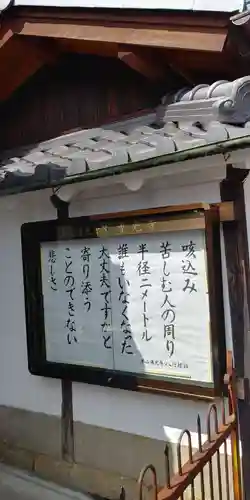 咳込み
苦しむ人の周り
半径二メートル
誰もいなくなった
大丈夫ですかと
寄り添う
ことのできない
悲しさ